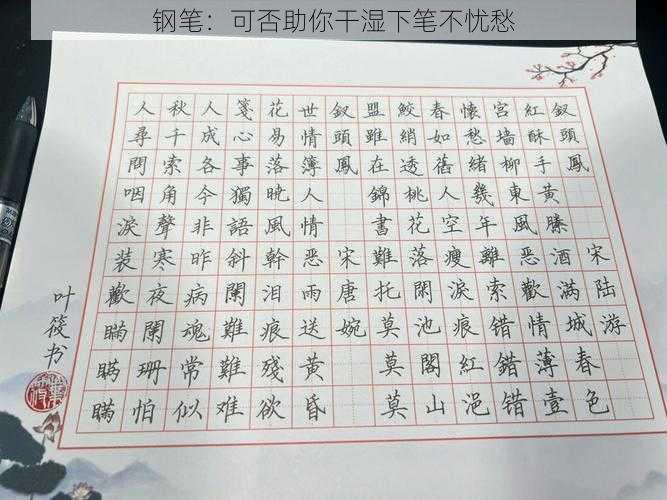 钢笔：可否助你干湿下笔不忧愁
釵頭鳳宋陸游
紅酥手黄縢酒滿城春色
宮墙柳東風恶歡情薄壹
懷愁緒幾年離索错錯错
春如舊人空瘦淚痕紅浥
鮫綃透桃花落閑池閣山
盟雖在錦書難托莫莫莫
釵頭鳳宋唐婉
世情簿人情恶雨送黄昏
花易落曉風幹泪痕殘欲
箋心事獨語斜闌難難难
人成各今非昨病魂常似
秋千索角聲寒夜闌珊怕
人尋問咽淚装歡瞞瞞瞒
叶筱书